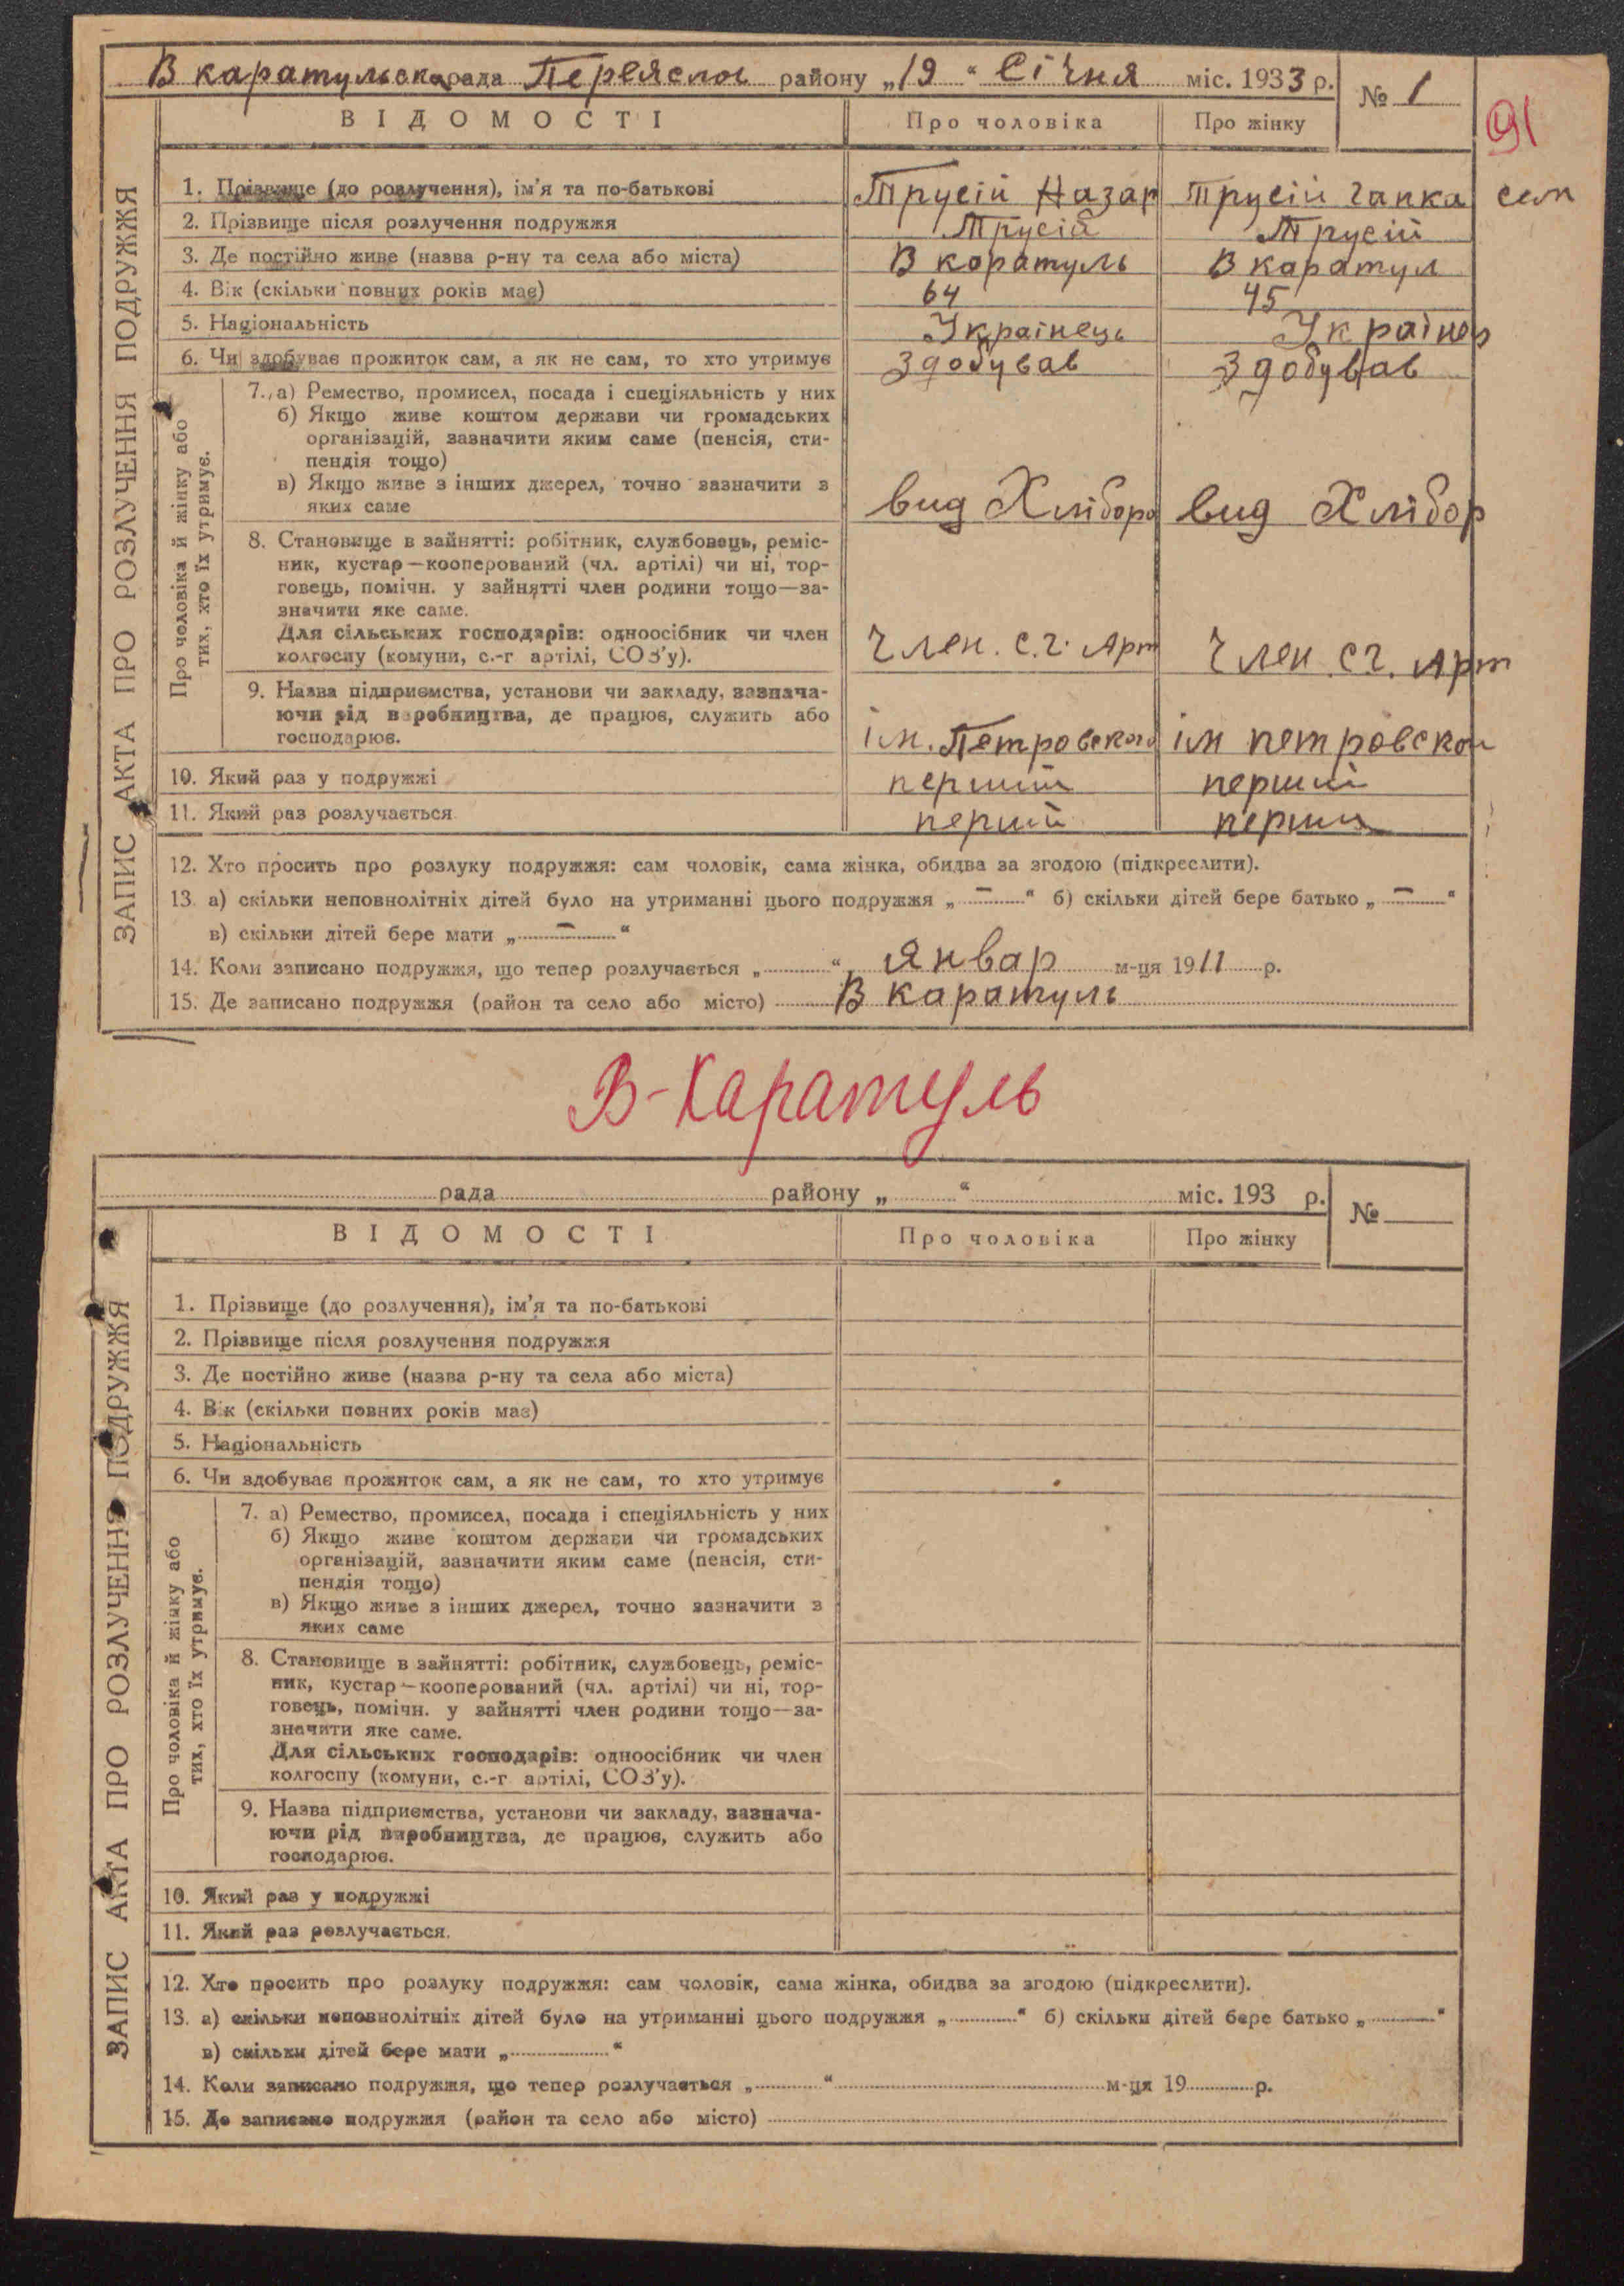 В каратульска рада Переяслов району „19“ Січня міс. 1933 р. № 1
91
ВІДОМОСТІ Про чоловіка Про жінку
ЗАПИС АКТА ПРО РОЗЛУЧЕННЯ ПОДРУЖЖЯ
1. Прізвище (до розлучення), ім'я та по-батькові Трусій Назар Трусій
2. Прізвище після розлучення подружжя Трусій Трусій
3. Де постійно живе (назва р-ну та села або міста) В коратуль В каратул
4. Вік (скільки повних років має) 64 45
5. Національність Українець Українец
6. Чи здобуває прожиток сам, а як не сам, то хто утримує Здобував Здобував
Про чоловіка й жінку або
тих, хто їх утримує.
7. а) Ремество, промисел, посада і спеціяльність у них
б) Якщо живе коштом держави чи громадських
організацій, зазначити яким саме (пенсія, сти-
пендія тощо)
в) Якщо живе з інших джерел, точно зазначити з
яких саме вид Хлібор вид Хлібор
8. Становище в зайнятті: робітник, службовець, реміс-
ник, кустар—кооперований (чл. артілі) чи ні, тор-
говець, помічн. у зайнятті член родини тощо—за-
значити яке саме.
Для сільських господарів: одноосібник чи член
колгоспу (комуни, с.-г артілі, СОЗ'у). Член. с.г. Арт Член с г. Арт
9. Назва підприємства, установи чи закладу, зазнача-
ючи рід виробництва, де працює, служить або
господарює. ім. Петровского ім петровског
10. Який раз у подружжі перший перший
11. Який раз розлучається перший
12. Хто просить про розлуку подружжя: сам чоловік, сама жінка, обидва за згодою (підкреслити).
13. а) скільки неповнолітніх дітей було на утриманні цього подружжя „ — “ б) скільки дітей бере батько „ — “
в) скільки дітей бере мати „ — “
14. Коли записано подружжя, що тепер розлучається „ “ Январ м-ця 1911 р.
15. Де записано подружжя (район та село або місто) В каратуль
В-Каратуль
рада району „ “ міс. 193 р. №
ВІДОМОСТІ Про чоловіка Про жінку
ЗАПИС АКТА ПРО РОЗЛУЧЕННЯ ПОДРУЖЖЯ
1. Прізвище (до розлучення), ім'я та по-батькові
2. Прізвище після розлучення подружжя
3. Де постійно живе (назва р-ну та села або міста)
4. Вік (скільки повних років має)
5. Національність
6. Чи здобуває прожиток сам, а як не сам, то хто утримує
Про чоловіка й жінку або
тих, хто їх утримує.
7. а) Ремество, промисел, посада і спеціяльність у них
б) Якщо живе коштом держави чи громадських
організацій, зазначити яким саме (пенсія, сти-
пендія тощо)
в) Якщо живе з інших джерел, точно зазначити з
яких саме
8. Становище в зайнятті: робітник, службовець, реміс-
ник, кустар—кооперований (чл. артілі) чи ні, тор-
говець, помічн. у зайнятті член родини тощо—за-
значити яке саме.
Для сільських господарів: одноосібник чи член
колгоспу (комуни, с.-г артілі, СОЗ'у).
9. Назва підприємства, установи чи закладу, зазнача-
ючи рід виробництва, де працює, служить або
господарює.
10. Який раз у подружжі
11. Який раз розлучається.
12. Хто просить про розлуку подружжя: сам чоловік, сама жінка, обидва за згодою (підкреслити).
13. а) скільки неповнолітніх дітей було на утриманні цього подружжя „ “ б) скільки дітей бере батько „ “
в) скільки дітей бере мати „ “
14. Коли записано подружжя, що тепер розлучається „ “ м-ця 19 р.
15. Де записано подружжя (район та село або місто)